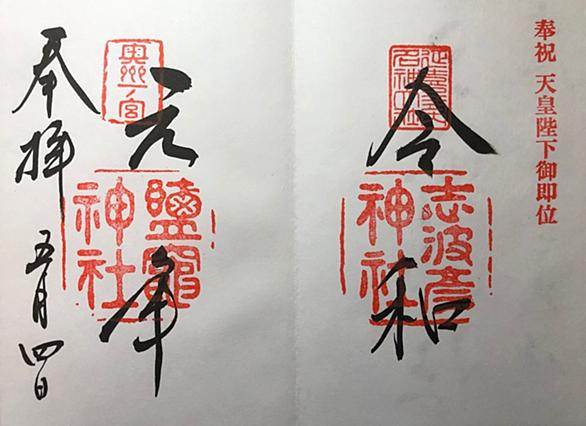 奉祝 天皇陛下御即位
延喜式名神大社
志波彦神社
令和
奥州一宮
鹽竈神社
元年
奉拝
五月四日